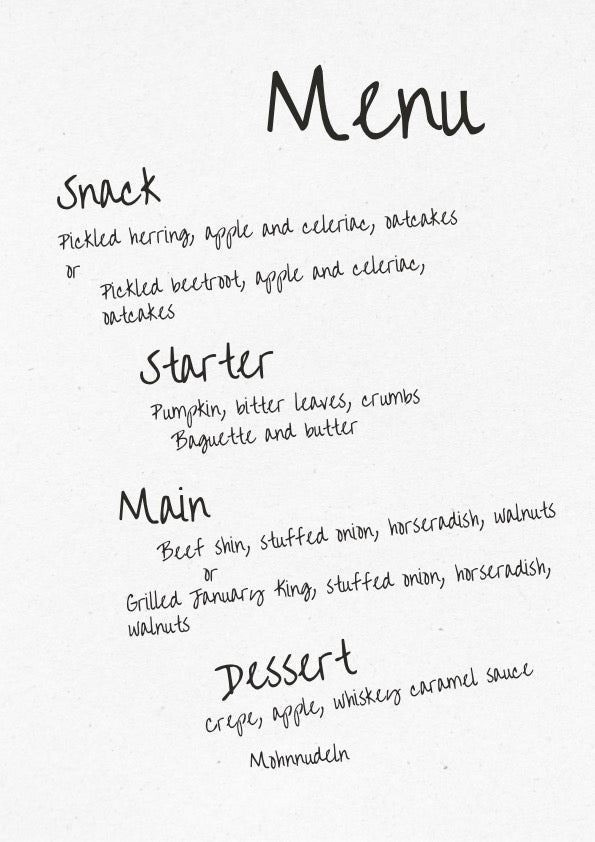 Menu
Snack
Pickled herring, apple and celeriac, oatcakes
or
Pickled beetroot, apple and celeriac,
oatcakes
Starter
Pumpkin, bitter leaves, crumbs
Baguette and butter
Main
Beef shin, stuffed onion, horseradish, walnuts
or
Grilled January King, stuffed onion, horseradish,
walnuts
Dessert
Crepe, apple, whiskey caramel sauce
Mohnnudeln